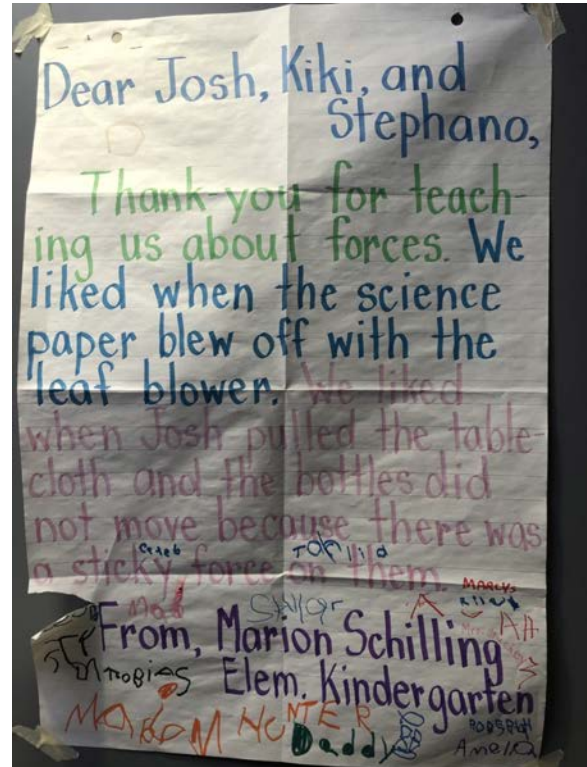 Dear Josh, Kiki, and
Stephano,
Thank-you for teach-
ing us about forces. We
liked when the science
paper blew off with the
leaf blower. We liked
when Josh pulled the table-
cloth and the bottles did
not move because there was
a sticky force on them.
From, Marion Schilling
TOBIAS Elem. Kindergarten
HUNTER
Daddy